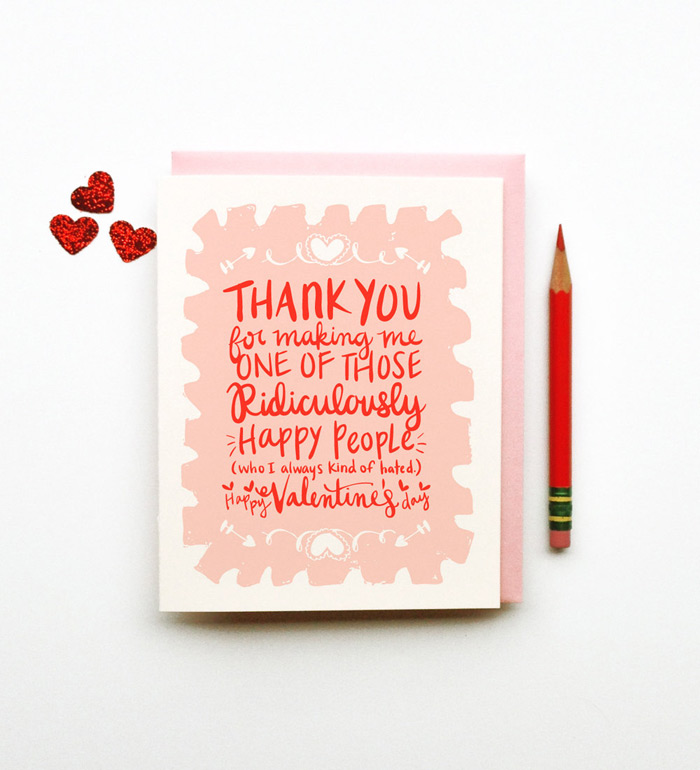 THANK YOU
for making me
ONE OF THOSE
Ridiculously
HAPPY PEOPLE
(who I always kind of hated.)
Happy Valentine's day